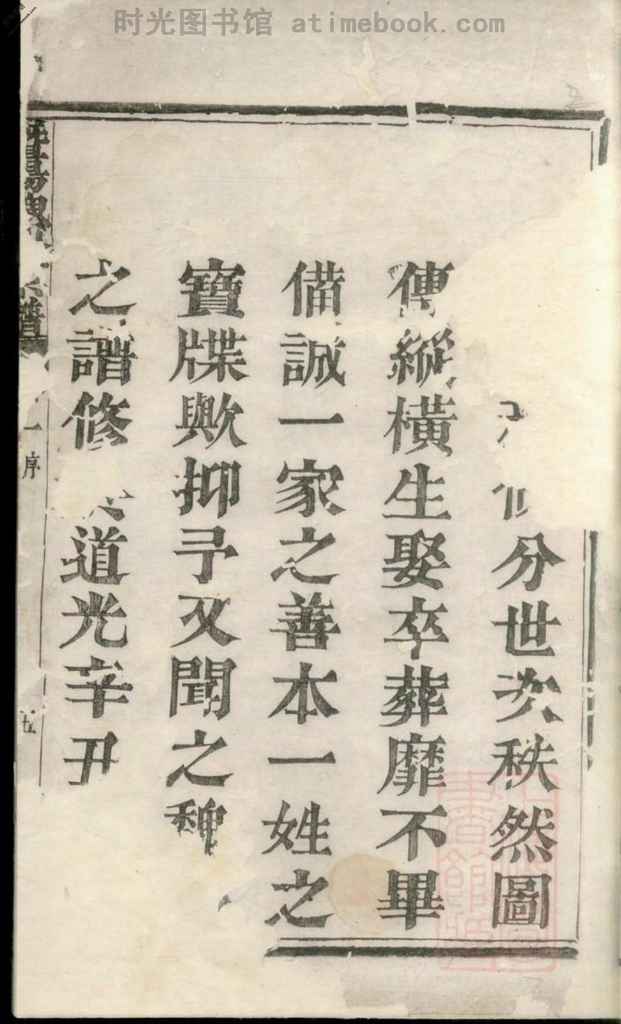 时光图书馆 atimebook.com
分世次秩然圖
傳縱橫生娶卒葬靡不畢
備誠一家之善本一姓之
寶牒歟抑予又聞之
之譜修 道光辛丑
譜
一序
五